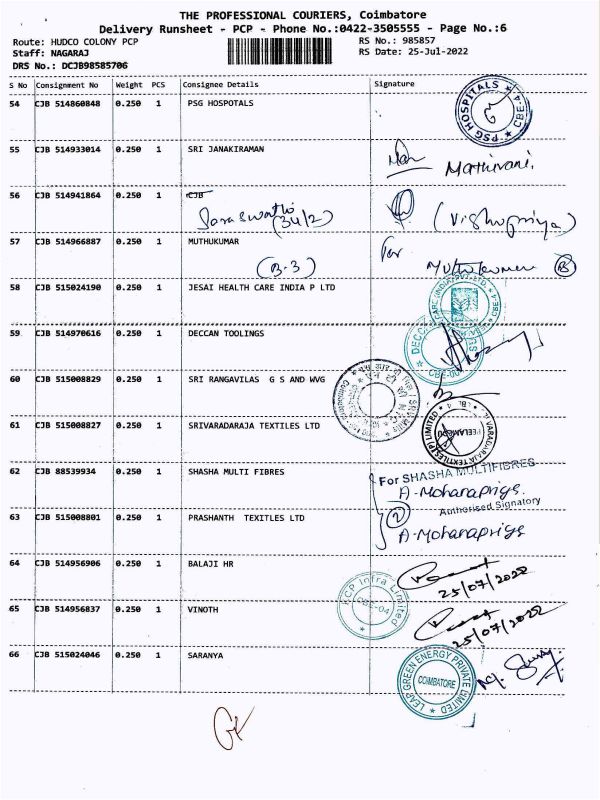 THE PROFESSIONAL COURIERS, Coimbatore
Delivery Runsheet - PCP - Phone No.:0422-3505555 - Page No.:6
Route: HUDCO COLONY PCP RS No.: 985857
Staff: NAGARAJ RS Date: 25-Jul-2022
DRS No.: DCJB98585706
S No Consignment No Weight PCS Consignee Details Signature
54 CJB 514860848 0.250 1 PSG HOSPOTALS PSG HOSPITALS CBE-4
55 CJB 514933014 0.250 1 SRI JANAKIRAMAN Mathivani.
56 CJB 514941864 0.250 1 CJB
Saraswathi (34/2) (Vishnupriya)
57 CJB 514966887 0.250 1 MUTHUKUMAR For
(B-3) Muthukumar
58 CJB 515024190 0.250 1 JESAI HEALTH CARE INDIA P LTD
59 CJB 514970616 0.250 1 DECCAN TOOLINGS
60 CJB 515008829 0.250 1 SRI RANGAVILAS G S AND WVG
61 CJB 515008827 0.250 1 SRIVARADARAJA TEXTILES LTD
VARADARAJA TEXTILES (P) LIMITED PEELAMEDU
62 CJB 88539934 0.250 1 SHASHA MULTI FIBRES For SHASHA MULTIFIBRES
A-Mohanapriya.
Authorised Signatory
63 CJB 515008801 0.250 1 PRASHANTH TEXITLES LTD 2
A-Mohanapriya
64 CJB 514956906 0.250 1 BALAJI HR
25/07/2022
KCP Infra Limited CBE-04
65 CJB 514956837 0.250 1 VINOTH
25/07/2022
66 CJB 515024046 0.250 1 SARANYA LEAP GREEN ENERGY PRIVATE LIMITED COIMBATORE